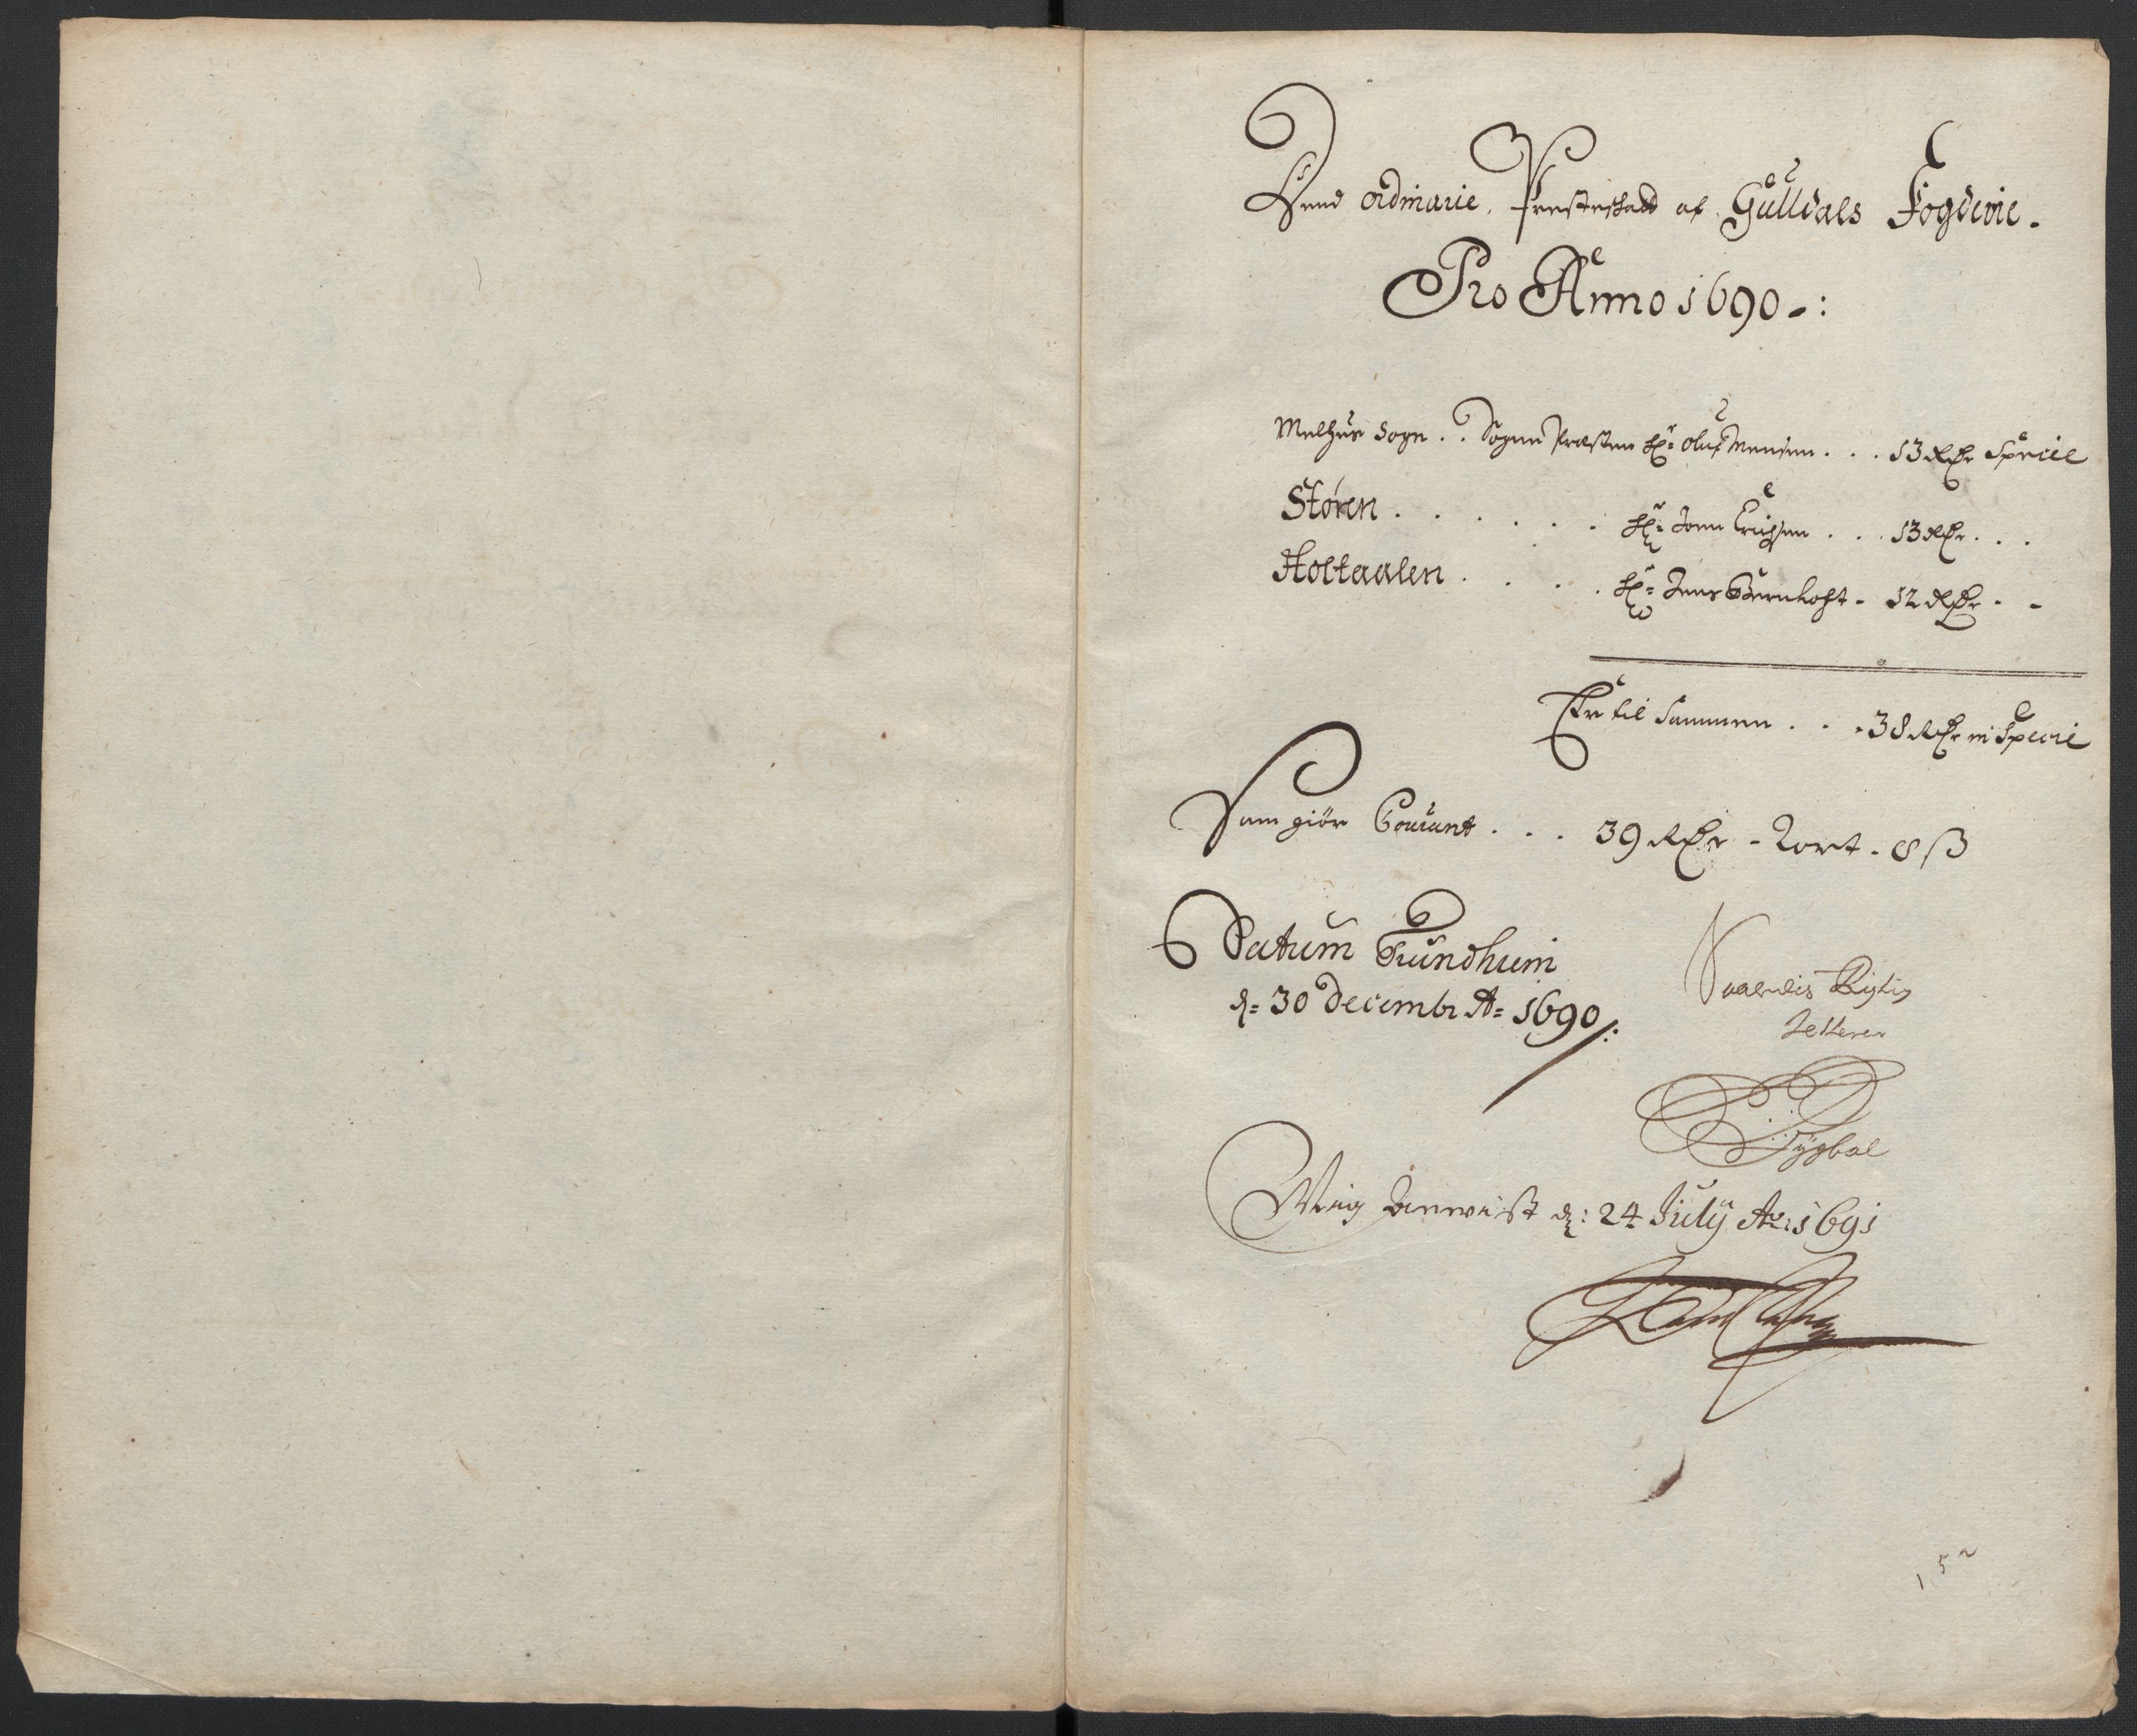 Dend ordinarie Presteskatt af Guldals Fogderie.
Pro Anno 1690 -:
Melhus Sogn . . Sogne Præsten Hr: Oluf Mensen . . . 13 Rdr Specie
Støren . . . . . . Hr: Jonn Erichsen . . . 13 Rdr . . .
Holtaalen . . . . . Hr: Jens Bernhoft - 12 Rdr - -
Er til Sammen . . . 38 Rdr in Specie
Som giør Courant . . . 39 Rdr - Zort - 8 ß
Datum Trundhiem
d: 30 Decembr Ao: 1690 /:
Saaledis Rigtig
Testerer
Mig Anwist d: 24 July Ao: 1691
152